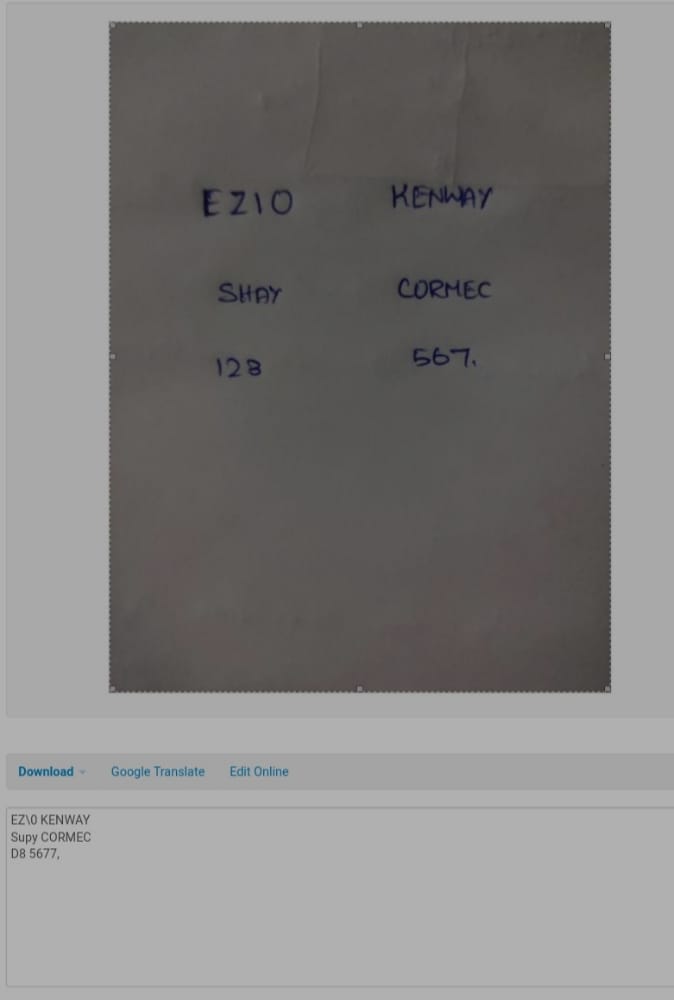 EZIO KENWAY
SHAY CORMEC
128 567.
Download Google Translate Edit Online
EZ\0 KENWAY
Supy CORMEC
D8 5677,